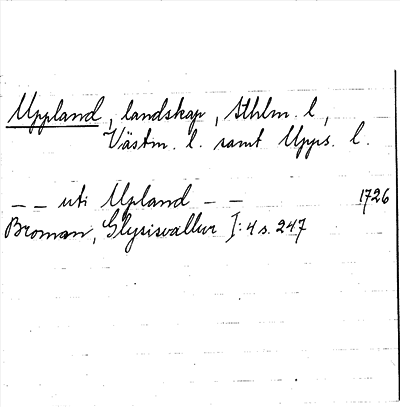 Uppland, landskap, Sthlm. l.,
Västm. l. samt Upps. l.
_ _ uti Upland _ _ 1726
Broman, Glysisvallur I:4 s. 247